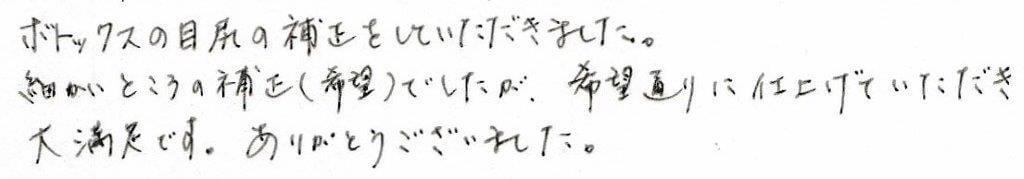 ボトックスの目尻の補正をしていただきました。
細かいところの補正(希望)でしたが、希望通りに仕上げていただき
大満足です。ありがとうございました。